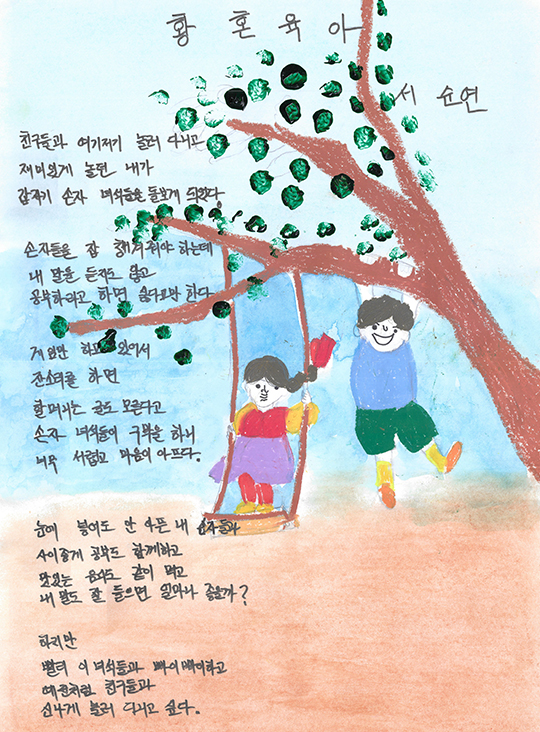 황혼육아
서순연
친구들과 여기저기 놀러 다니고
재미있게 놀던 내가
갑자기 손자 녀석들을 돌보게 되었다.
손자들을 잘 챙겨줘야 하는데
내 말을 듣지도 않고
공부하라고 하면 싫다고만 한다
게임만 하고 있어서
잔소리를 하면
할머니는 글도 모른다고
손자 녀석들이 구박을 하니
너무 서럽고 마음이 아프다.
눈에 넣어도 안 아픈 내 손자들과
사이좋게 공부도 함께하고
맛있는 음식도 같이 먹고
내 말도 잘 들으면 얼마나 좋을까?
하지만
빨리 이 녀석들과 빠이빠이하고
예전처럼 친구들과
신나게 놀러 다니고 싶다.